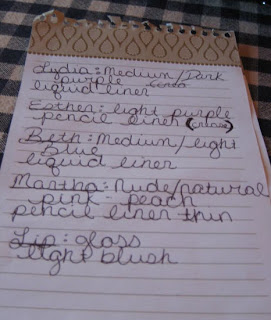 Lydia: Medium/Dark
purple
liquid liner
Esther: light purple
pencil liner
Beth: Medium/light
blue
liquid liner
Martha: Nude/natural
pink - peach
pencil liner thin
Lip: gloss
light blush